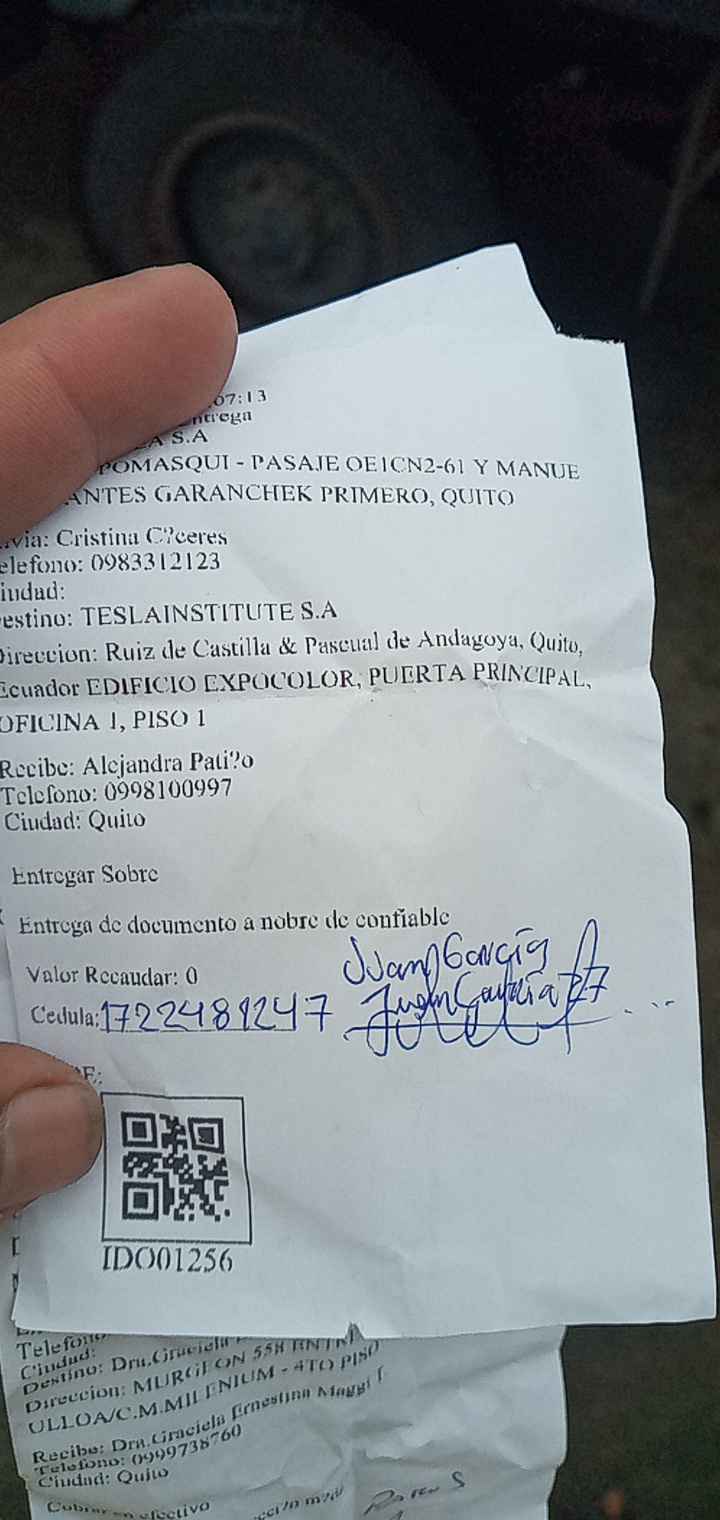 07:13
ntrega
S.A
POMASQUI - PASAJE OE1CN2-61 Y MANUE
ANTES GARANCHEK PRIMERO, QUITO
nvia: Cristina C?ceres
elefono: 0983312123
iudad:
estino: TESLAINSTITUTE S.A
Direccion: Ruiz de Castilla & Pascual de Andagoya, Quito,
Ecuador EDIFICIO EXPOCOLOR, PUERTA PRINCIPAL,
OFICINA 1, PISO 1
Recibe: Alejandra Pati?o
Telefono: 0998100997
Ciudad: Quito
Entregar Sobre
Entrega de documento a nobre de confiable
Juan Garcia
Valor Recaudar: 0
Cedula: 1722481247
IDO01256
Telefono
Ciudad:
Destino: Dra.Graciela
Direccion: MURGEON 558 ENTRE
ULLOA/C.M.MILENIUM - 4TO PISO
Recibe: Dra.Graciela Ernestina Maggi
Telefono: 0999738760
Ciudad: Quito
Cobrar en efectivo